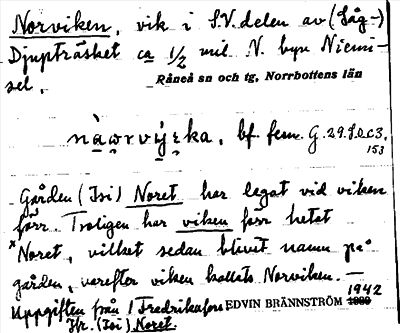 Norviken, vik i S.V. delen av (Låg-)
Djupträsket ca 1/2 mil N. byn Niemi-
sel.
Råneå sn och tg, Norrbottens län
bf. fem. G. 29.
153
Gården (Isi) Noret har legat vid viken
förr. Troligen har viken förr hetat
*Noret, vilket sedan blivit namn på
gården, varefter viken kallats Norviken. —
Uppgiften från Fredrikafors EDVIN BRÄNNSTRÖM 1942
Hr. (Isi) Noret.